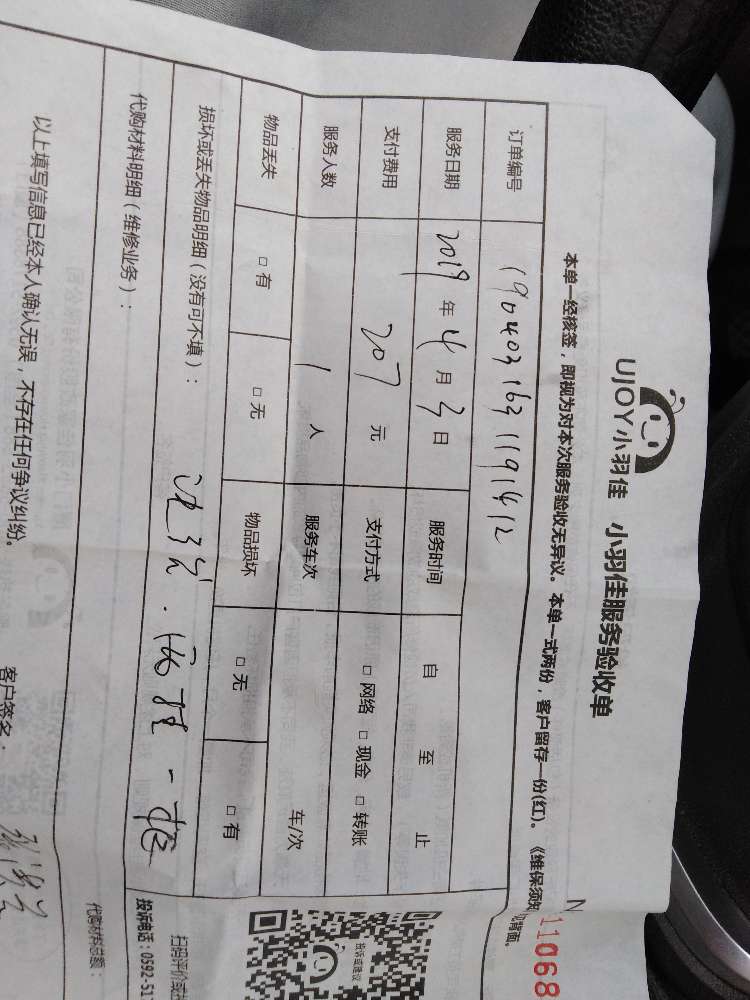 UJOY小羽佳 小羽佳服务验收单
本单一经核签，即视为对本次服务验收无异议。本单一式两份，客户留存一份(红)。《维保须知
见背面。
N
11068
订单编号 19040316311191412
服务日期 2019 年 4 月 3 日 服务时间 自 至 止
支付费用 207 元 支付方式 □ 网络 □ 现金 □ 转账
服务人数 1 人 服务车次 车/次
物品丢失 □ 有 □ 无 物品损坏 □ 无 □ 有
损坏或丢失物品明细（没有可不填）：
代购材料明细（维修业务）：
投诉或建议
扫码评价或投
投诉电话：0592-51
代购材料总额：
以上填写信息已经本人确认无误，不存在任何争议纠纷。
客户签名：